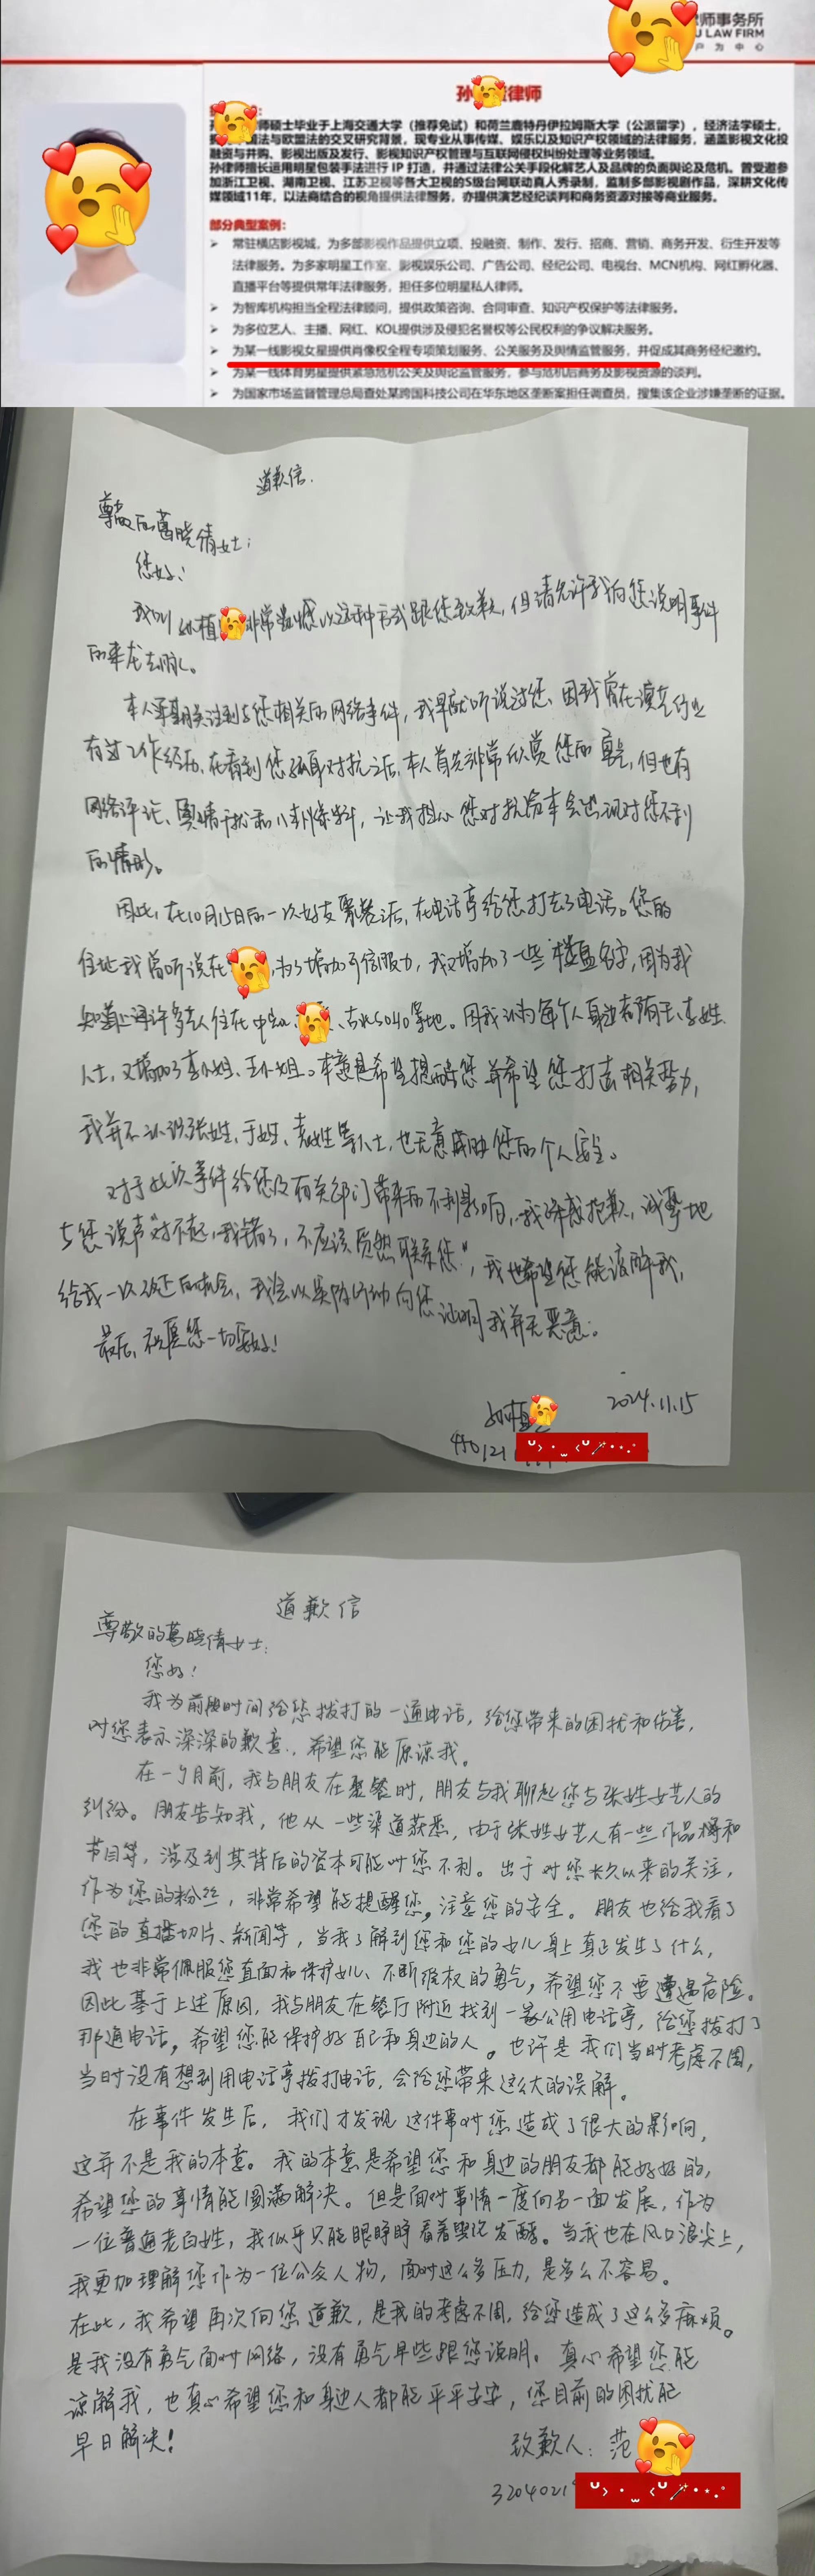 律师事务所
U LAW FIRM
户 为 中 心
孙 律师
师硕士毕业于上海交通大学（推荐免试）和荷兰鹿特丹伊拉姆斯大学（公派留学），经济法学硕士，
国法与欧盟法的交叉研究背景，现专业从事传媒、娱乐以及知识产权领域的法律服务，涵盖影视文化投
融资与并购、影视出版及发行、影视知识产权管理与互联网侵权纠纷处理等业务领域。
孙律师擅长运用明星包装手法进行 IP 打造，并通过法律公关手段化解艺人及品牌的负面舆论及危机。曾受邀参
加浙江卫视、湖南卫视、江苏卫视等各大卫视的S级台网联动真人秀录制，监制多部影视剧作品，深耕文化传
媒领域11年，以法商结合的视角提供法律服务，亦提供演艺经纪谈判和商务资源对接等商业服务。
部分典型案例：
常驻横店影视城，为多部影视作品提供立项、投融资、制作、发行、招商、营销、商务开发、衍生开发等
法律服务。为多家明星工作室、影视娱乐公司、广告公司、经纪公司、电视台、MCN机构、网红孵化器、
直播平台等提供常年法律服务，担任多位明星私人律师。
为智库机构担当全程法律顾问，提供政策咨询、合同审查、知识产权保护等法律服务。
为多位艺人、主播、网红、KOL提供涉及侵犯名誉权等公民权利的争议解决服务。
为某一线影视女星提供肖像权全程专项策划服务、公关服务及舆情监管服务，并促成其商务经纪邀约。
为某一线体育男星提供紧急危机公关及舆论监管服务，参与危机后商务及影视资源的谈判。
为国家市场监督管理总局查处某跨国科技公司在华东地区垄断案担任调查员，搜集该企业涉嫌垄断的证据。
道歉信.
尊敬的葛晓倩女士：
您好！
我叫孙植 非常遗憾以这种方式跟您致歉，但请允许我向您说明事件
的来龙去脉。
本人早期关注到与您相关的网络事件，我早就听说过您、因我曾在演艺行业
有过工作经历、在看到您孤身对抗之后，本人首先非常欣赏您的勇气，但也有
网络评论、舆情干扰和八卦爆料，让我担心您对抗资本会出现对您不利
的情形。
因此，在10月15日的一次好友聚餐之后，在电话亭给您打去了电话。您的
住址我曾听说在 ，为了增加可信服力，我又增加了一些楼盘名字，因为我
知道上海许多艺人住在中 、古北SOHO等地。因我认为每个人身边都有王、李姓
人士，又增加了李小姐、王小姐。本意是希望提醒您并希望您打击相关势力，
我并不认识张姓、于姓、袁姓等人士，也无意威胁您的个人安全。
对于此次事件给您及有关部门带来的不利影响，我深感抱歉，诚挚地
与您说声“对不起，我错了，不应该贸然联系您”，我也希望您能谅解我，
给我一次改正的机会，我会以实际行动向您证明我并无恶意。
最后，祝愿您一切安好！
孙植 2024.11.15
440121
道歉信
尊敬的葛晓倩女士：
您好！
我为前段时间给您拨打的一通电话，给您带来的困扰和伤害，
对您表示深深的歉意，希望您能原谅我。
在一个月前，我与朋友在聚餐时，朋友与我聊起您与张姓女艺人的
纠纷。朋友告知我，他从一些渠道获悉，由于张姓女艺人有一些作品和
节目等，涉及到其背后的资本可能对您不利。出于对您长久以来的关注，
作为您的粉丝，非常希望能提醒您，注意您的安全。朋友也给我看了
您的直播切片、新闻等，当我了解到您和您的女儿身上真正发生了什么，
我也非常佩服您直面和保护女儿、不断维权的勇气，希望您不要遭遇危险。
因此基于上述原因，我与朋友在餐厅附近找到一家公用电话亭，给您拨打了
那通电话，希望您能保护好自己和身边的人。也许是我们当时考虑不周，
当时没有想到用电话亭拨打电话，会给您带来这么大的误解。
在事件发生后，我们才发现这件事对您造成了很大的影响，
这并不是我的本意。我的本意是希望您和身边的朋友都能好好的，
希望您的事情能圆满解决。但是面对事情一度向另一面发展，作为
一位普通老百姓，我似乎只能眼睁睁看着舆论发酵。当我也在风口浪尖上，
我更加理解您作为一位公众人物，面对这么多压力，是多么不容易。
在此，我希望再次向您道歉，是我的考虑不周，给您造成了这么多麻烦。
是我没有勇气面对网络，没有勇气早些跟您说明。真心希望您能
谅解我，也真心希望您和身边人都能平平安安，您目前的困扰能
早日解决！
致歉人：范
3204021